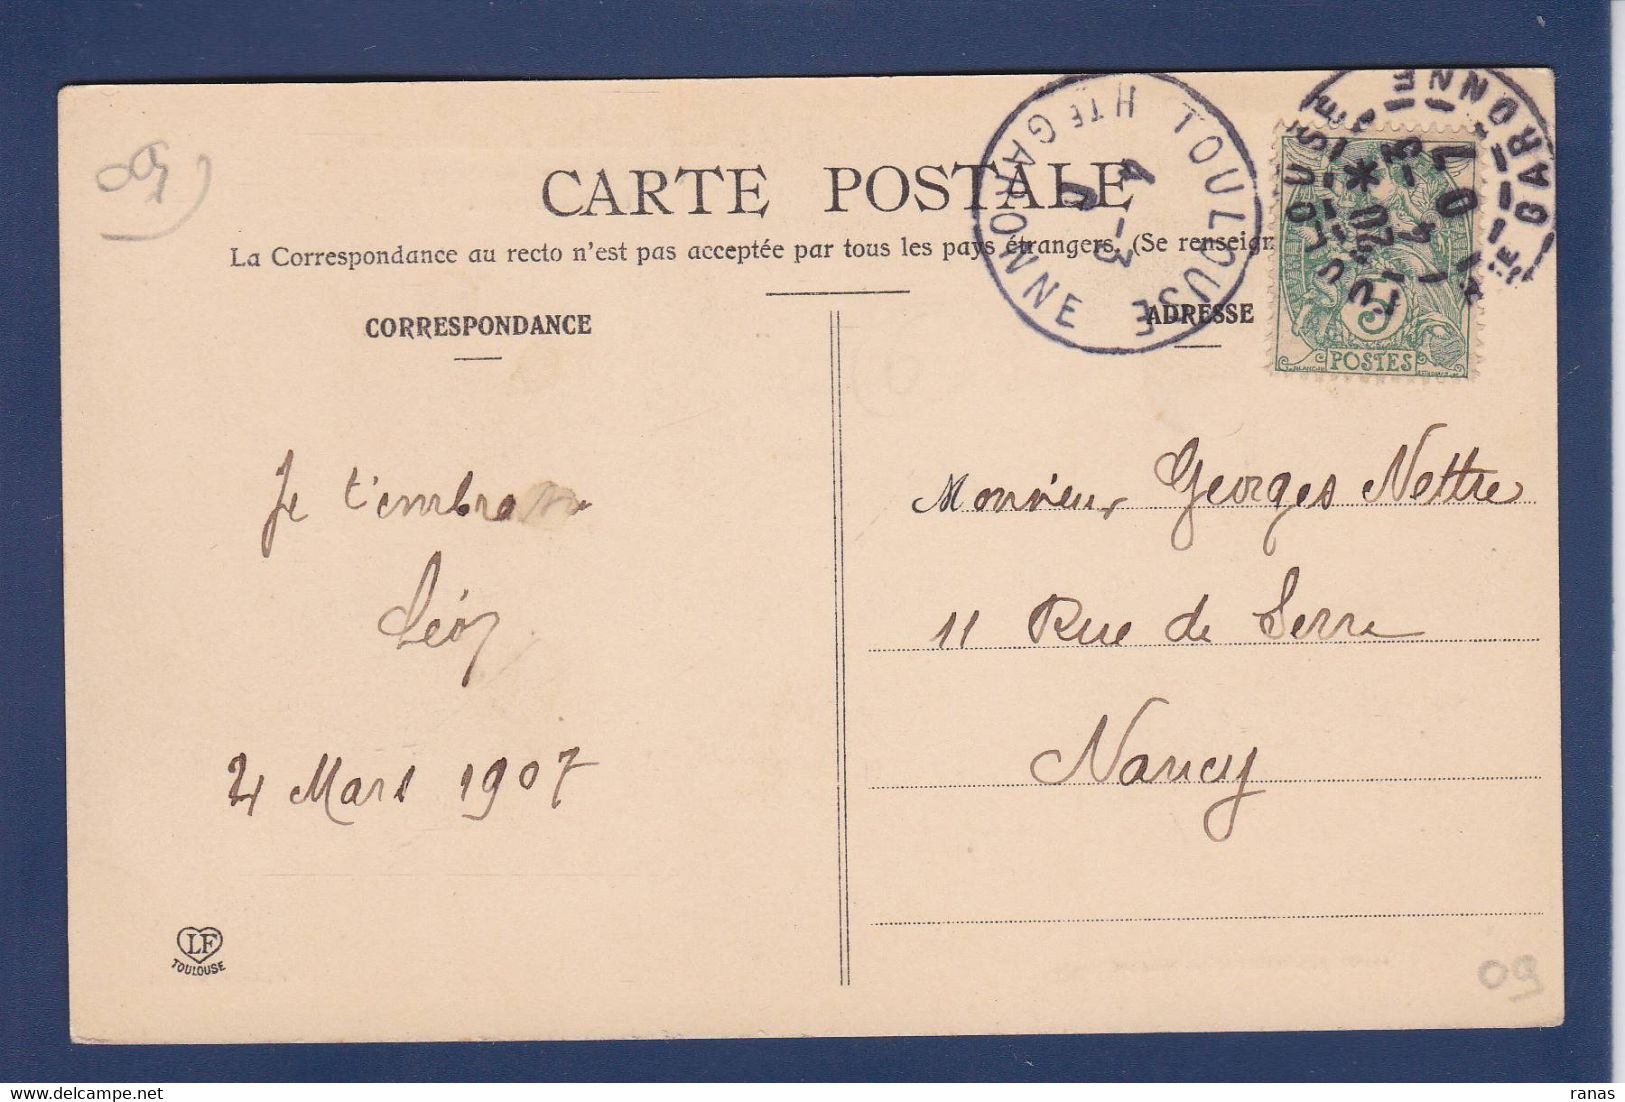 CARTE POSTALE
La Correspondance au recto n'est pas acceptée par tous les pays étrangers. (Se renseign
CORRESPONDANCE
ADRESSE
TOULOUSE
HTE GARONNE
4 - 3
TOULOUSE
20
4 - 3
07
HTE GARONNE
5
POSTES
Je t'embrasse
Léon
4 Mars 1907
Monsieur Georges Nettre
11 Rue de Serre
Nancy
LF
TOULOUSE
09
09
ranas